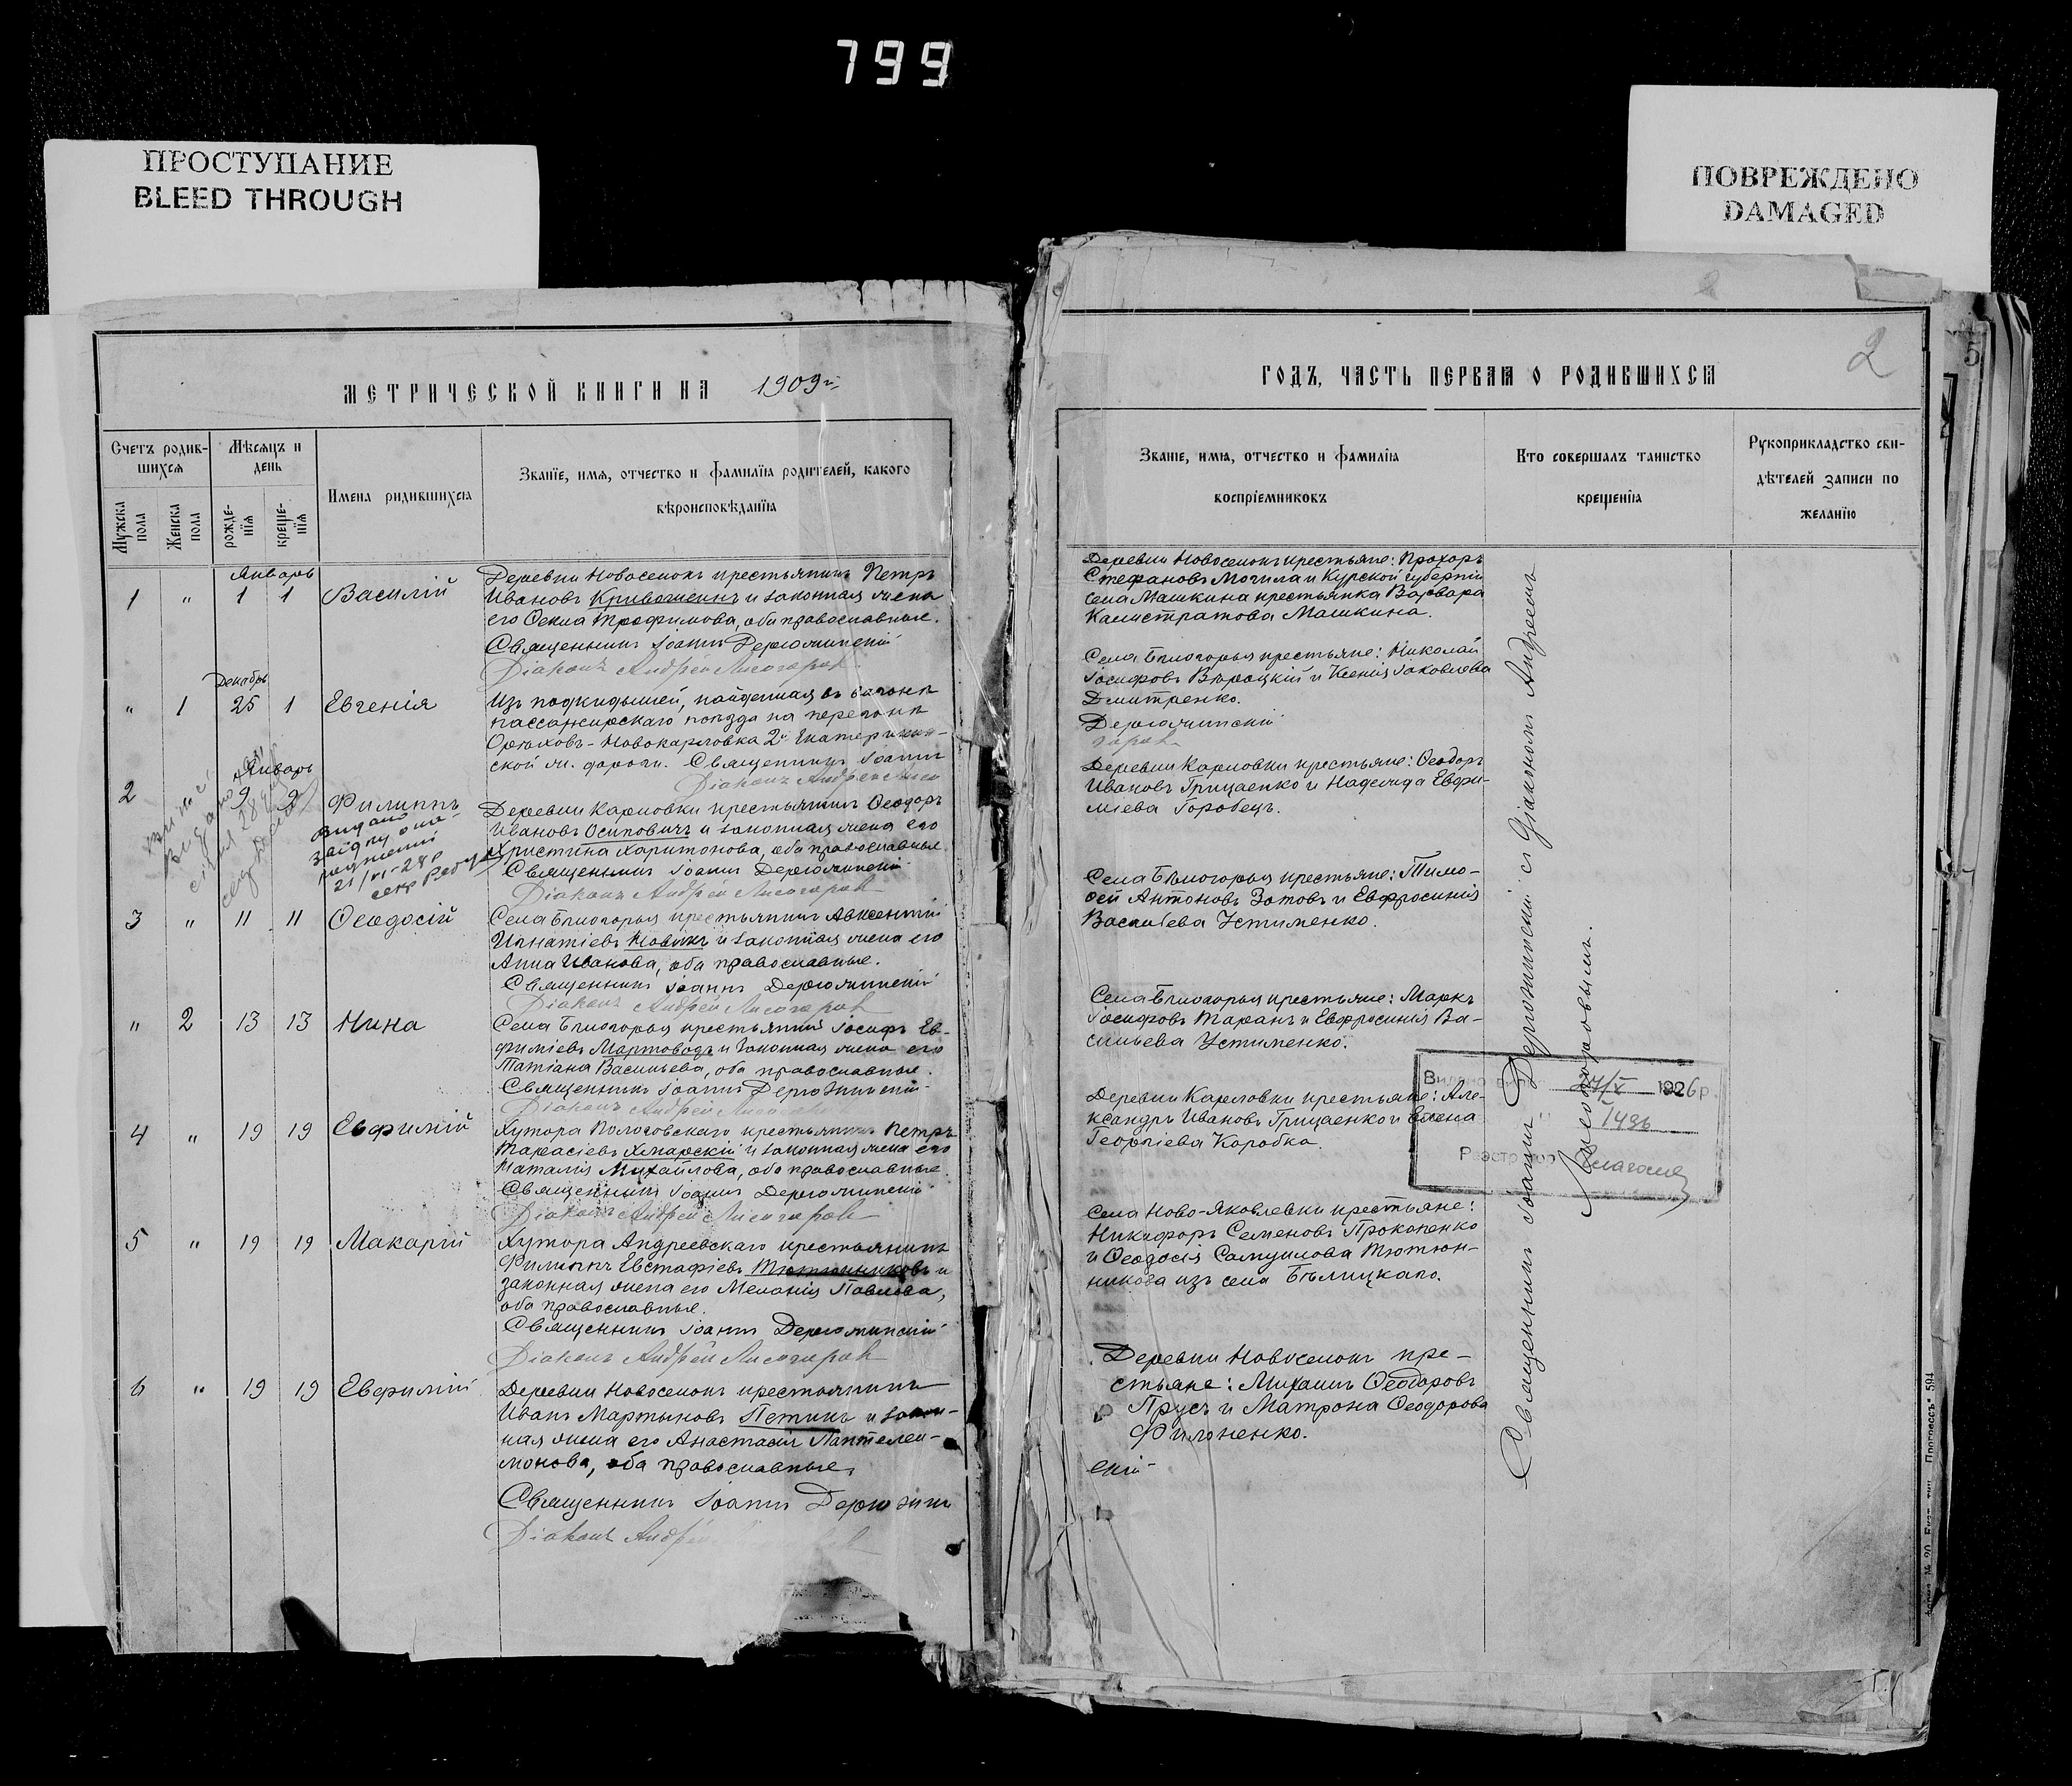 799
ПРОСТУПАНИЕ
BLEED THROUGH
ПОВРЕЖДЕНО
DAMAGED
МЕТРИЧЕСКОЙ КНИГИ НА 1909й
Счетъ родив-
шихся
Мужска
пола
Женска
пола
Мѣсяцъ и
день
рожде-
нія
креще-
нія
Имена родившихся
Званіе, имя, отчество и фамилія родителей, какого
вѣроисповѣданія
Январь
1 " 1 1 Василій
Деревни Новоселокъ крестьянинъ Петръ
Ивановъ Кривошеинъ и законная жена
его Ѳекла Трофимова, оба православные.
Священникъ Іоаннъ Держожинскій
Діаконъ Андрей Лисогоровъ
Декабрь
" 1 25 1 Евгенія
Изъ подкидышей, найденная въ вагонѣ
пассажирскаго поѣзда на перегонѣ
Орѣховъ-Новокарловка 2й Екатеринин-
ской ж. дороги. Священникъ Іоаннъ
Діаконъ Андрей Лисо
Январь
2 9 2 Филиппъ
Видано
21/VI-28р
Деревни Карловки крестьянинъ Ѳеодоръ
Ивановъ Осиповичъ и законная жена его
Христина Харитонова, оба православные
Священникъ Іоаннъ Держожинскій
Діаконъ Андрей Лисогоровъ
3 " 11 11 Ѳеодосій
Села Бѣлогорья крестьянинъ Авксентій
Игнатіевъ Новикъ и законная жена его
Анна Иванова, оба православные.
Священникъ Іоаннъ Держожинскій
Діаконъ Андрей Лисогоровъ
" 2 13 13 Нина
Села Бѣлогорья крестьянинъ Іосифъ Ев-
фиміевъ Мартоводъ и законная жена его
Татіана Васильева, оба православные.
Священникъ Іоаннъ Держожинскій
Діаконъ Андрей Лисогоровъ
4 " 19 19 Евфимій
Хутора Пологовскаго крестьянинъ Петръ
Тарасіевъ Хмарскій и законная жена его
Наталія Михайлова, оба православные.
Священникъ Іоаннъ Держожинскій
Діаконъ Андрей Лисогоровъ
5 " 19 19 Макарій
Хутора Андреевскаго крестьянинъ
Филиппъ Евстафіевъ Тютюнниковъ и
законная жена его Меланія Павлова,
оба православные.
Священникъ Іоаннъ Держожинскій
Діаконъ Андрей Лисогоровъ
6 " 19 19 Евфимій
Деревни Новоселокъ крестьянинъ
Иванъ Мартыновъ Петинъ и закон-
ная жена его Анастасія Пантелеи-
монова, оба православные.
Священникъ Іоаннъ Держожин
Діаконъ Андрей
2
5
ГОДЪ, ЧАСТЬ ПЕРВАЯ О РОДИВШИХСЯ
Званіе, имя, отчество и фамилія
воспріемниковъ
Кто совершалъ таинство
крещенія
Рукоприкладство сви-
дѣтелей записи по
желанію
Деревни Новоселокъ крестьяне: Прохоръ
Стефановъ Могила и Курской губерніи
села Машкина крестьянка Варвара
Калистратова Машкина.
Села Бѣлогорья крестьяне: Николай
Іосифовъ Вѣроцкій и Ксенія Іаковлева
Дмитренко.
Держожинскій
горовъ
Деревни Карловки крестьяне: Ѳеодоръ
Ивановъ Грицаенко и Надежда Евфи-
міева Горобецъ.
Села Бѣлогорья крестьяне: Тимо-
ѳей Антоновъ Зотовъ и Евфросинія
Васильева Устименко.
Села Бѣлогорья крестьяне: Маркъ
Іосифовъ Таранъ и Евфросинія Ва-
сильева Устименко.
Деревни Карловки крестьяне: Але-
ксандръ Ивановъ Грицаенко и Елена
Георгіева Коробка.
Села Ново-Яковлевки крестьяне:
Никифоръ Семеновъ Прокопенко
и Ѳеодосія Самуилова Тютюн-
никова изъ села Бѣлицкаго.
Деревни Новоселокъ кре-
стьяне: Михаилъ Ѳеодоровъ
Прусъ и Матрона Ѳеодорова
Филоненко.
скій
Священникъ Іоаннъ Держожинскій съ діакономъ Андреемъ
Лисогоровымъ.
24/X 1926р.
1486